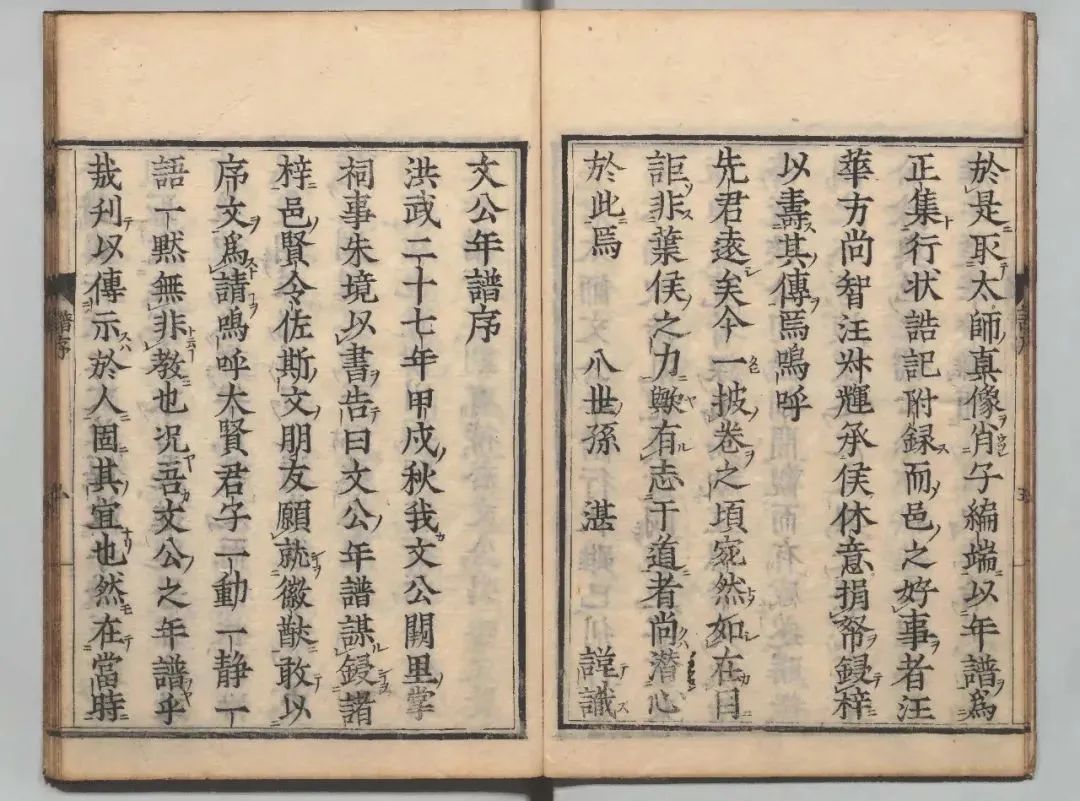 於是取太師真像肖于編端以年譜爲
正集行状誥記附録而邑之好事者汪
華方尚智汪叔輝承侯休意捐帑鋟梓
以壽其傳焉嗚呼
先君遠矣今一披卷之頃宛然如在目
詎非葉侯之力歟有志于道者尚潜心
於此焉 八世孫 湛 謹識
文公年譜序
洪武二十七年甲戍秋我文公闕里掌
祠事朱境以書告曰文公年譜謀鋟諸
梓邑賢令佐斯文朋友願就徽猷敢以
序文爲請嗚呼大賢君子一動一静一
語一黙無非教也况吾文公之年譜乎
哉刊以傳示於人固其宜也然在當時
譜序